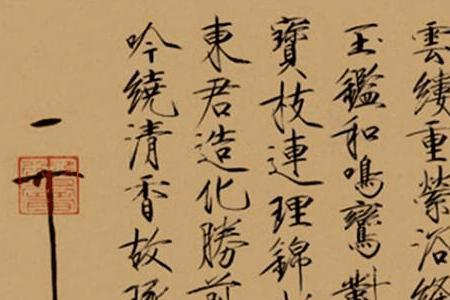 雲縷重縈浴絳
玉鑑和鳴鸞對
寶枝連理錦
東君造化勝前
吟繞清香故琢